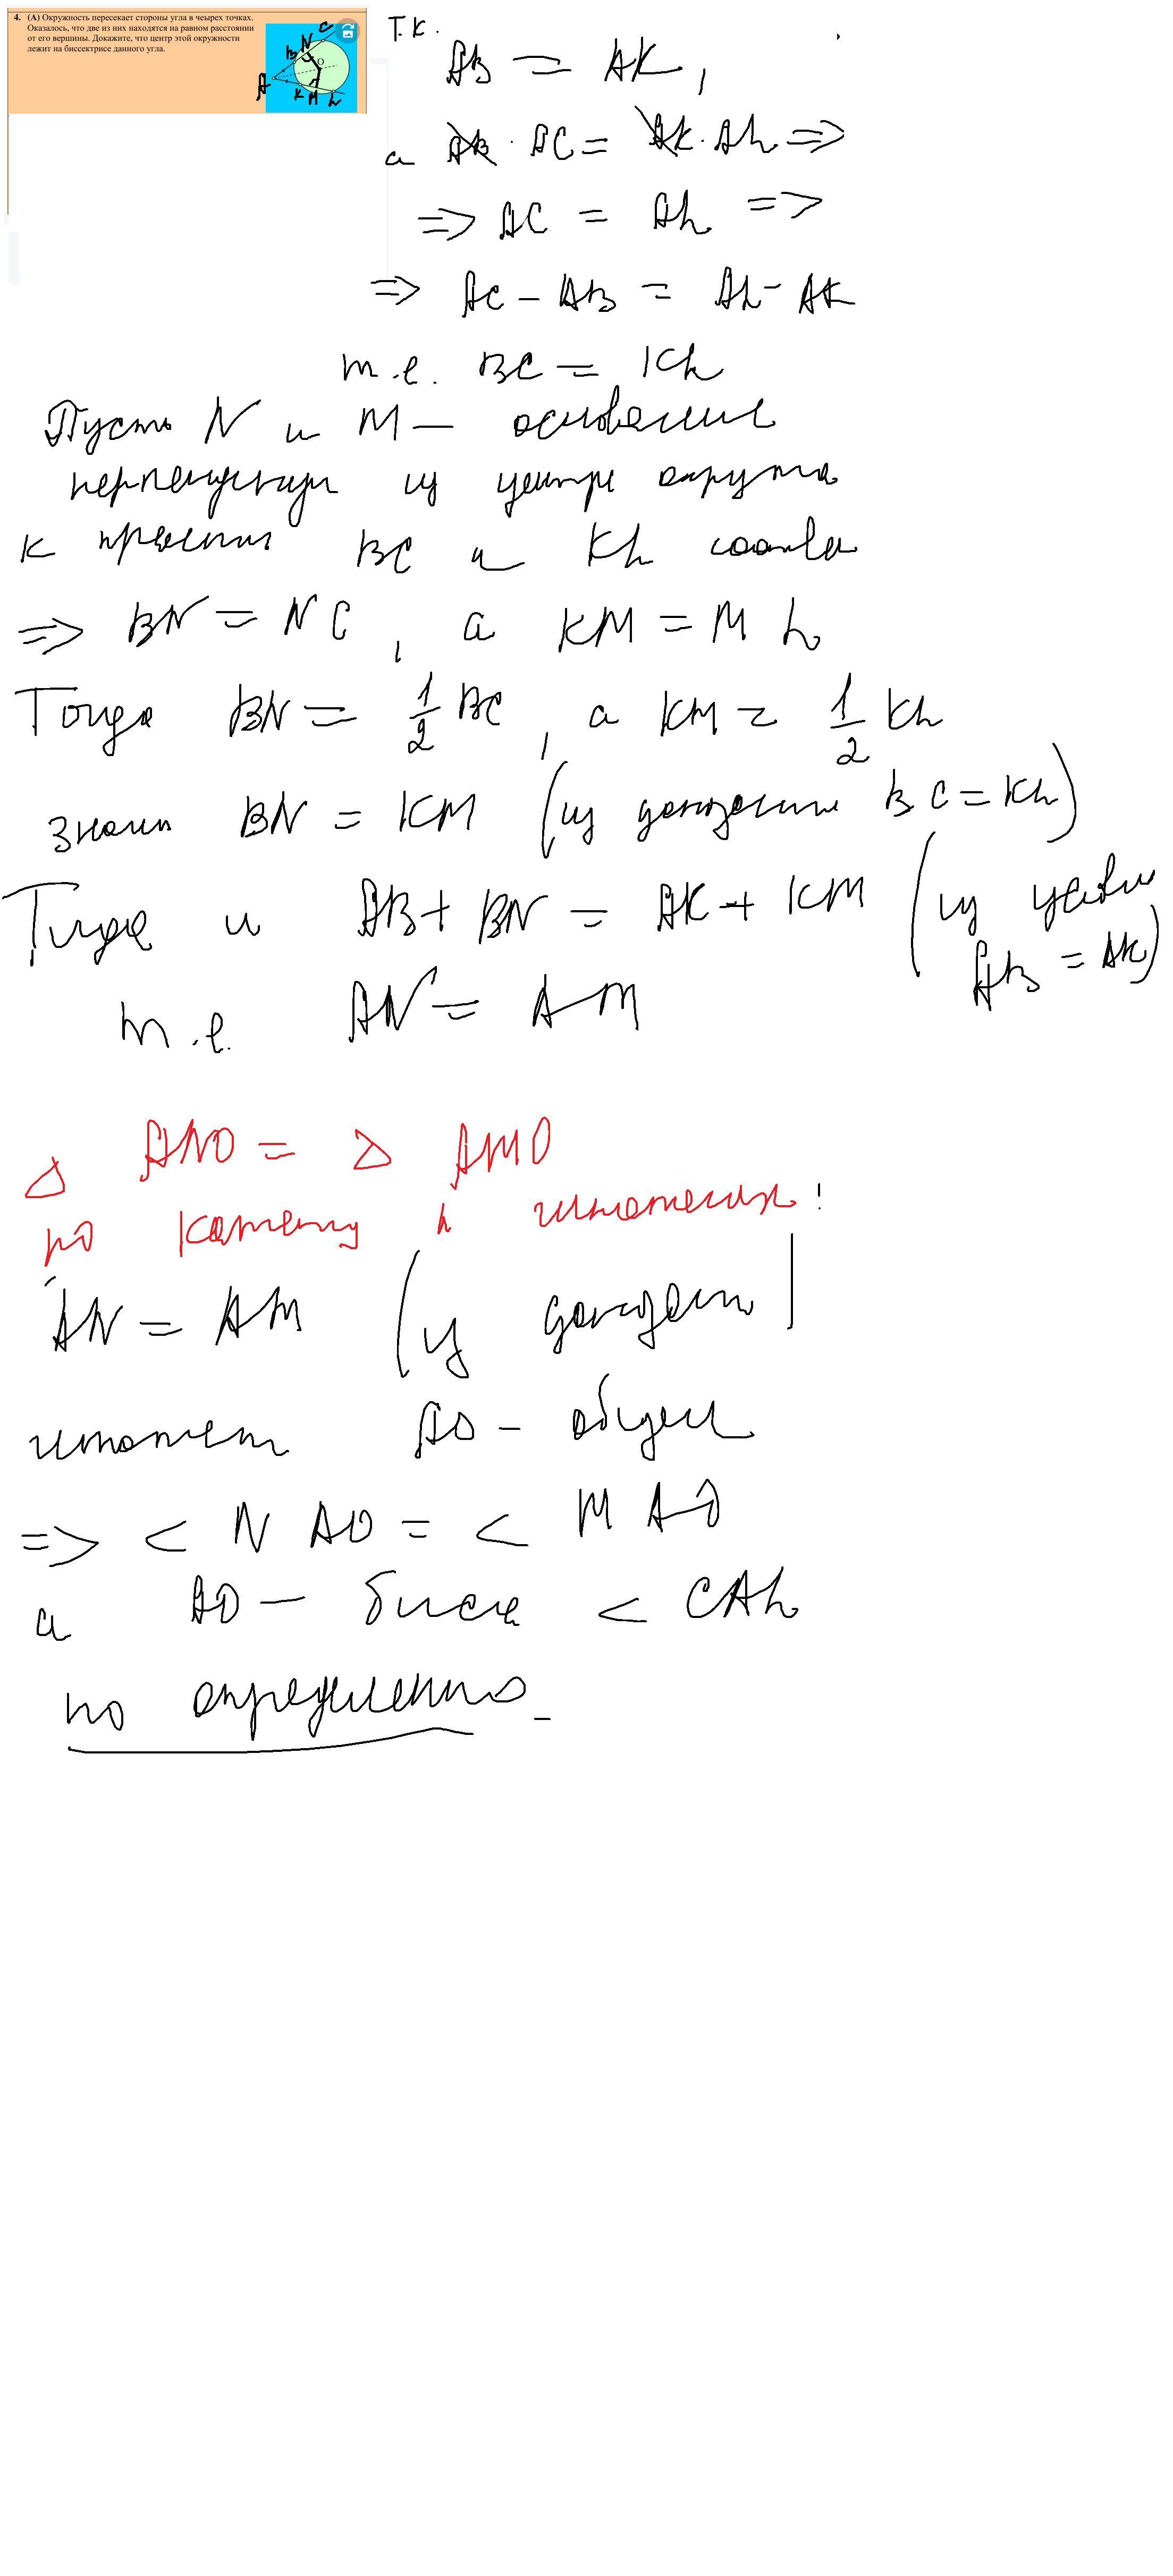 4. (А) Окружность пересекает стороны угла в чеырех точках.
Оказалось, что две из них находятся на равном расстоянии
от его вершины. Докажите, что центр этой окружности
лежит на биссектрисе данного угла.
A B N C O K M L
Т.к.
AB = AK,
а AB · AC = AK · AL =>
=> AC = AL =>
=> AC - AB = AL - AK
т.е. BC = KL
Пусть N и M — основания
перпендикуляр из центра окружно
к прямым BC и KL соотв
=> BN = NC, а KM = ML
Тогда BN = 1/2 BC, а KM = 1/2 KL
значит BN = KM (из доказанного BC = KL)
Тогда и AB + BN = AK + KM (из условия
AB = AK)
т.е. AN = AM
Δ ANO = Δ AMO
по катету и гипотенузе!
AN = AM (из доказан)
гипотен AO - общая
=> < NAO = < MAO
и AO - биссе < CAL
по определению.